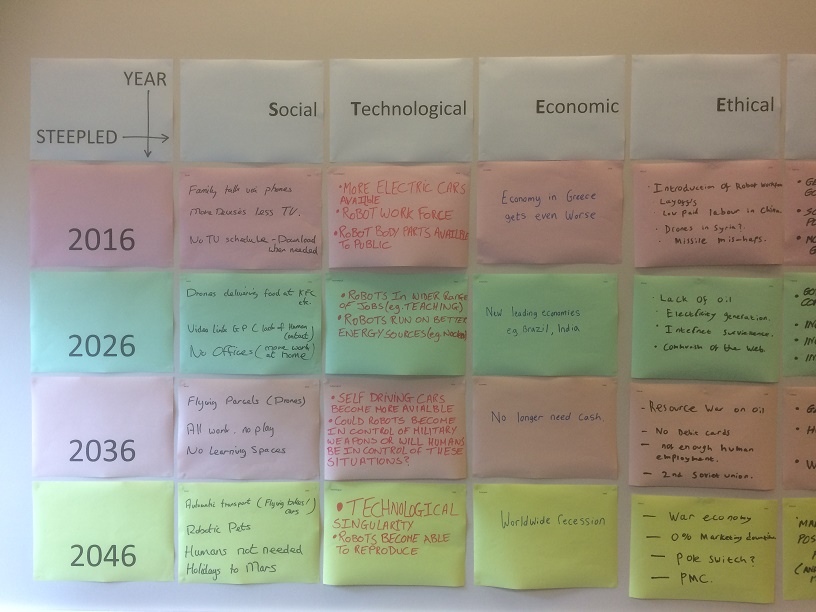 YEAR
STEEPLED
Social
Technological
Economic
Ethical
2016
Family talk via phones
More Devises Less TV.
No TV schedule - Download
when needed
• MORE ELECTRIC CARS
• ROBOT WORK FORCE
• ROBOT BODY PARTS
TO PUBLIC
Economy in Greece
gets even Worse
• Introduction of Robot
Layoffs
Low paid labour in China
• Drones in Syria?
• Missile mis-haps.
2026
Drones delivering food at KFC
etc.
Video link GP (lack of Human
contact)
No Offices (more work
at home)
• ROBOTS IN WIDER RANGE
OF JOBS (eg. TEACHING)
• ROBOTS RUN ON BETTER
ENERGY SOURCES (eg.
New leading economies
eg Brazil, India
• Lack of oil
• Electricity generation.
• Internet
• of the Web.
2036
Flying Parcels (Drones)
All work. no play
No Learning Spaces
• SELF DRIVING CARS
BECOME MORE AVIALBLE
• COULD ROBOTS BECOME
IN CONTROL OF MILITARY
WEAPONS OR WILL HUMANS
BE IN CONTROL OF THESE
SITUATIONS?
No longer need cash.
- Resource War on oil
- No Debit cards
- not enough human
employment.
- 2nd Soviet union.
2046
Automatic transport (Flying
cars
Robotic Pets
Humans not needed
Holidays to Mars
• TECHNOLOGICAL
SINGULARITY
• ROBOTS BECOME ABLE
TO REPRODUCE
Worldwide recession
— War economy
— 0% Marketing
— Pole switch?
— PMC.